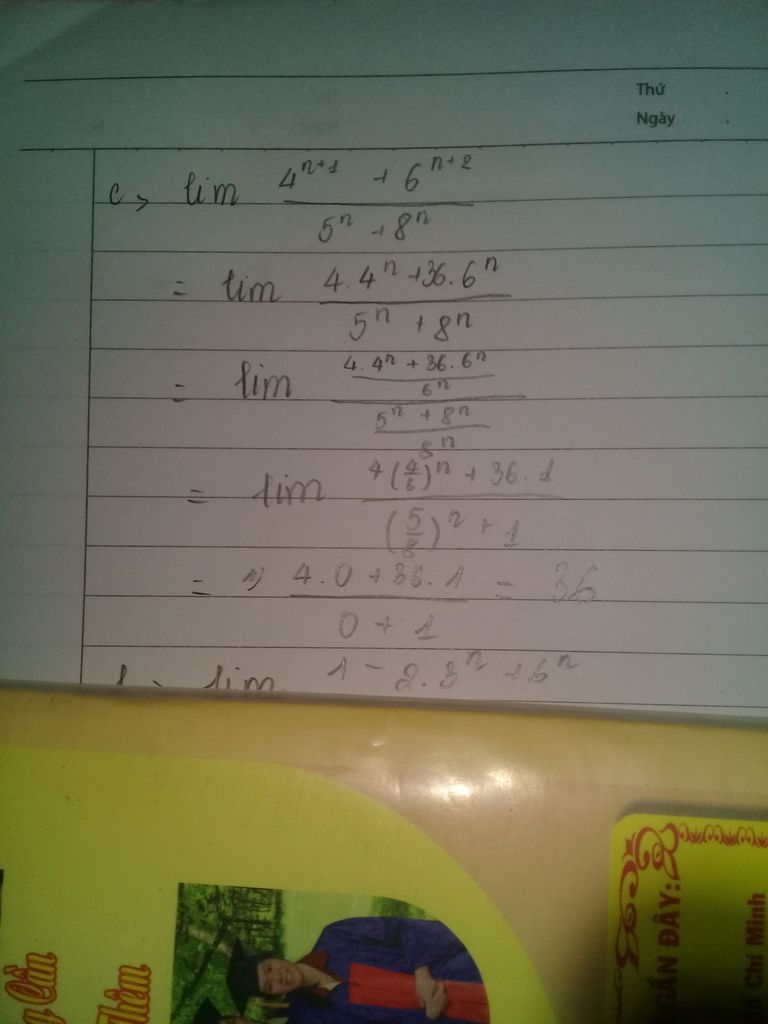 Thứ .
Ngày .
c> lim (4^{n+1} + 6^{n+2})/(5^n + 8^n)
= lim (4.4^n + 36.6^n)/(5^n + 8^n)
= lim ((4.4^n + 36.6^n)/6^n)/((5^n + 8^n)/8^n)
= lim (4(4/6)^n + 36.1)/((5/8)^n + 1)
= (4.0 + 36.1)/(0 + 1) = 36
lim 1 - 2.3^n + 6^n
Cần
Thêm
GẦN ĐÂY:
Hồ Chí Minh